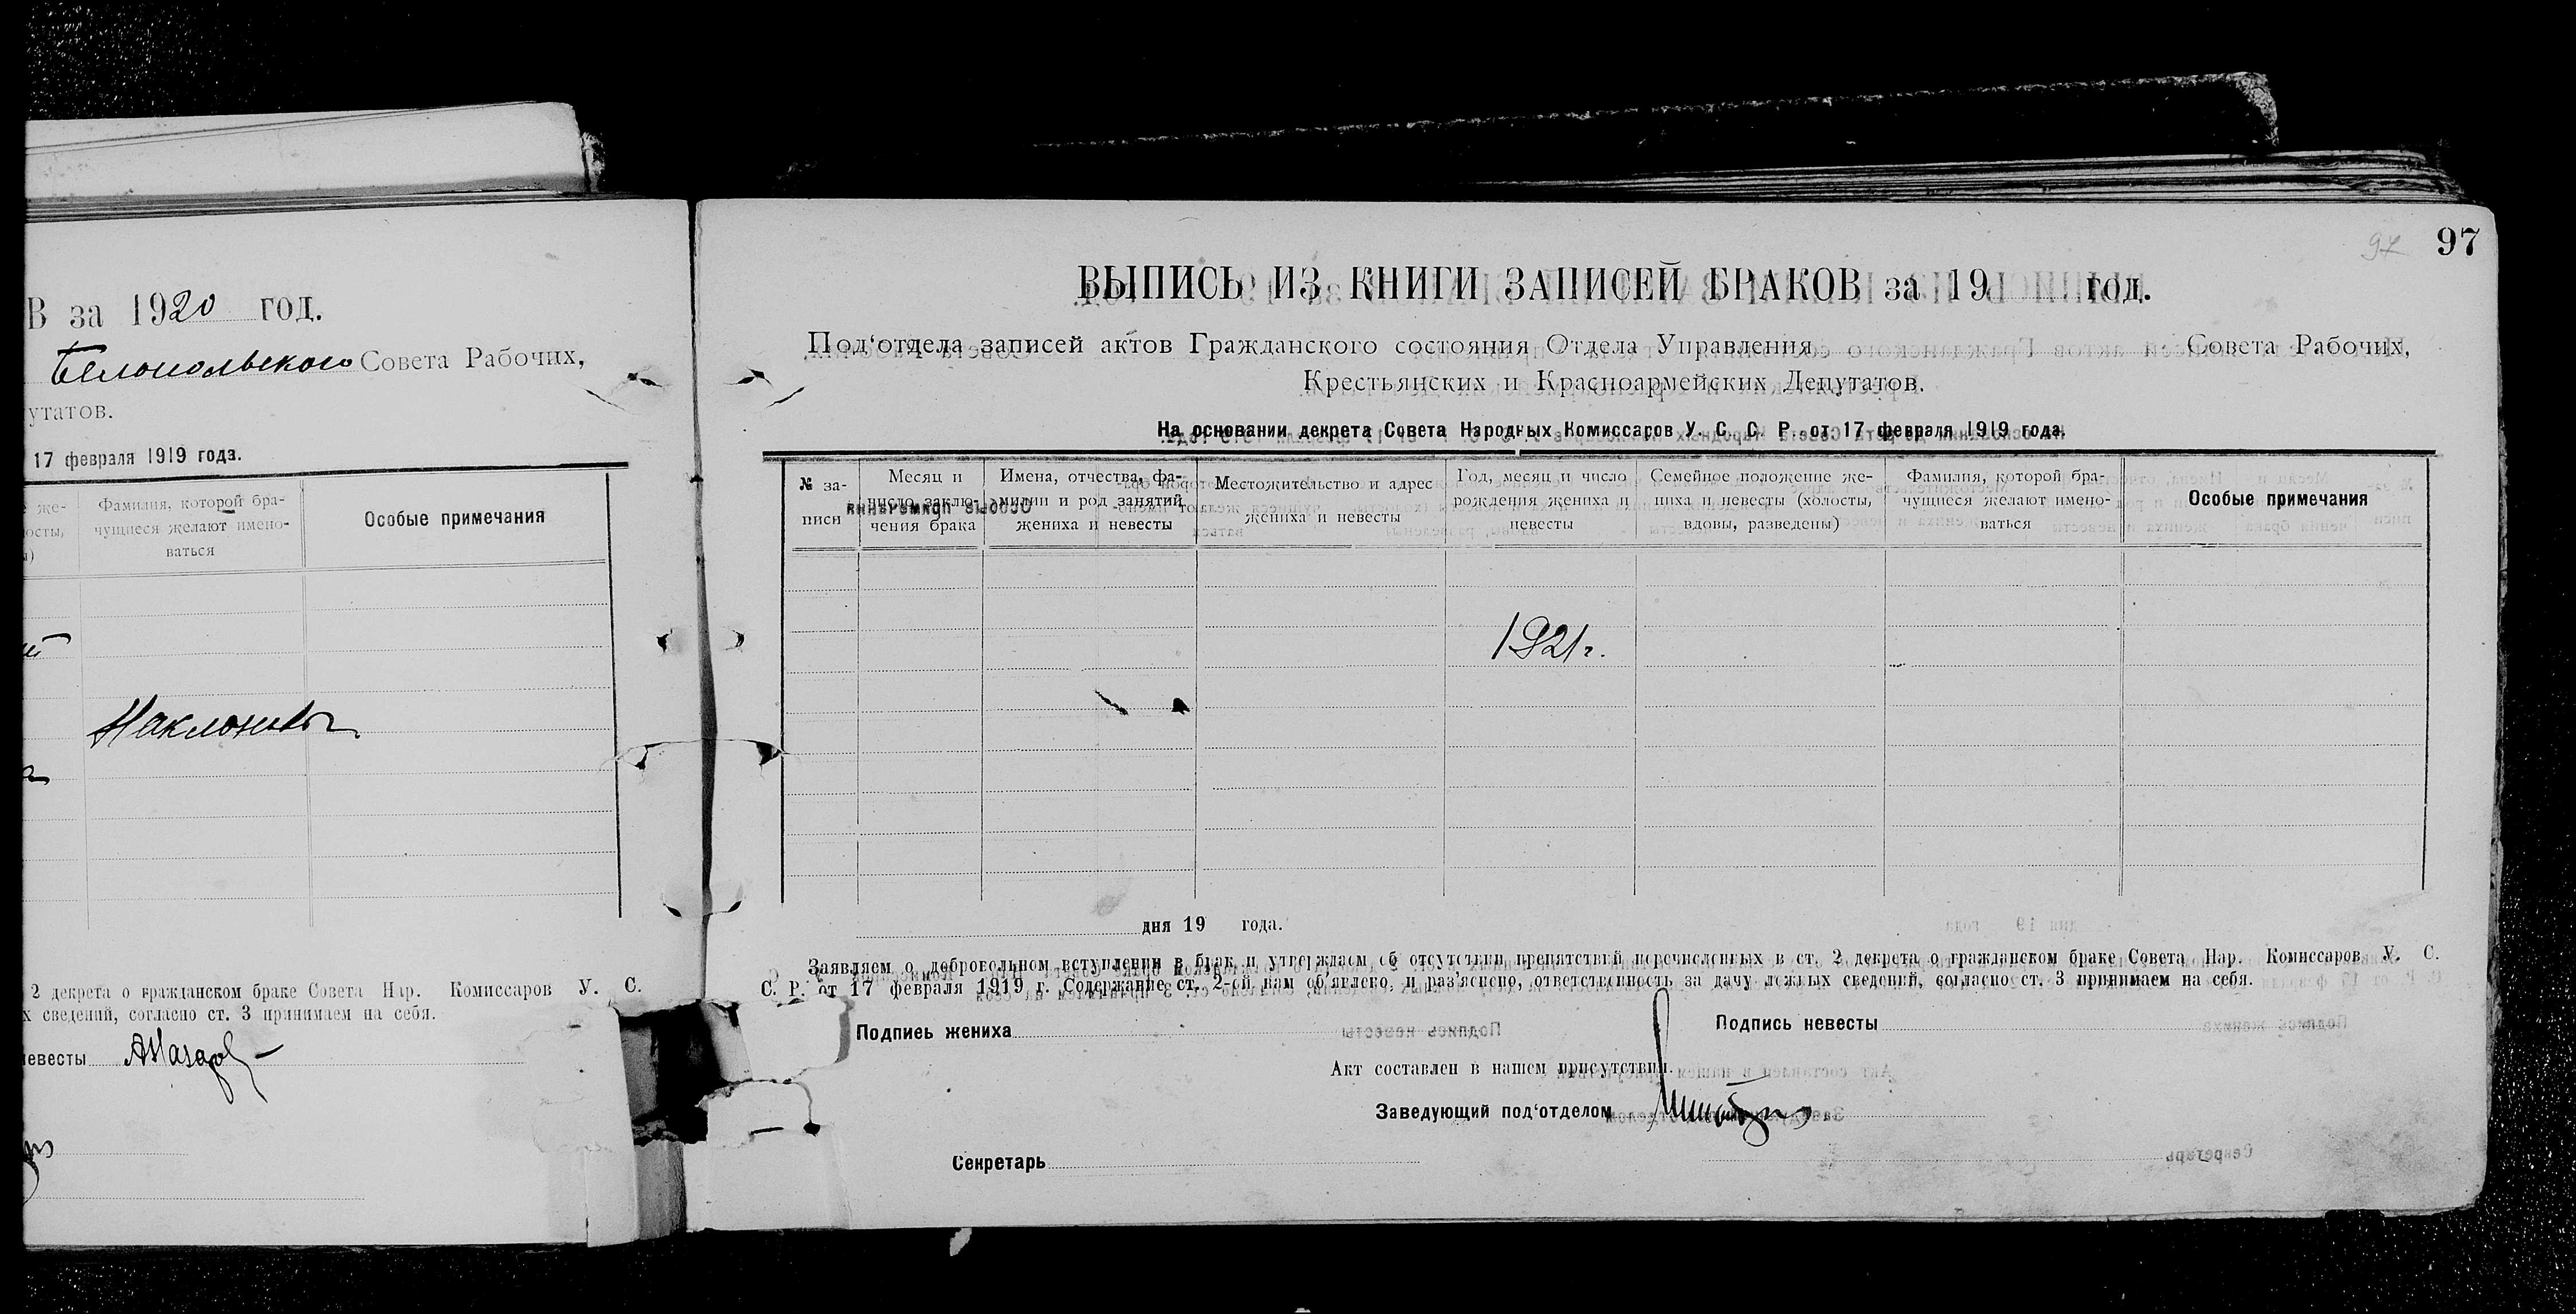 В за 1920 год.
Белопольского Совета Рабочих,
утатов.
17 февраля 1919 года.
же-
ости,
Фамилия, которой бра-
чущиеся желают имено-
ваться
Особые примечания
2 декрета о гражданском браке Совета Нар. Комиссаров У. С.
х сведений, согласно ст. 3 принимаем на себя.
невесты
97
97
ВЫПИСЬ ИЗ КНИГИ ЗАПИСЕЙ БРАКОВ за 19 год.
Под‘отдела записей актов Гражданского состояния Отдела Управления Совета Рабочих,
Крестьянских и Красноармейских Депутатов.
На основании декрета Совета Народных Комиссаров У. С. С. Р. от 17 февраля 1919 года.
№ за-
писи
Месяц и
число заклю-
чения брака
Имена, отчества, фа-
милии и род занятий
жениха и невесты
Местожительство и адрес
жениха и невесты
Год, месяц и число
рождения жениха и
невесты
Семейное положение же-
ниха и невесты (холосты,
вдовы, разведены)
Фамилия, которой бра-
чущиеся желают имено-
ваться
Особые примечания
1921 г.
дня 19 года.
Заявляем о добровольном вступлении в брак и утверждаем об отсутствии препятствий перечисленных в ст. 2 декрета о гражданском браке Совета Нар. Комиссаров У. С.
С. Р. от 17 февраля 1919 г. Содержание ст. 2-ой нам об‘явлено, и раз‘яснено, ответственность за дачу ложных сведений, согласно ст. 3 принимаем на себя.
Подпись жениха
Подпись невесты
Акт составлен в нашем присутствии.
Заведующий под‘отделом
Секретарь